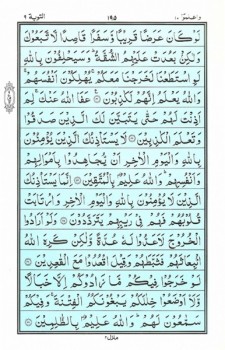 التوبة ٩
١٩٥
واعلموا ١٠
لَوْ كَانَ عَرَضًا قَرِيبًا وَّسَفَرًا قَاصِدًا لَّاتَّبَعُوْكَ
وَلٰكِنْۢ بَعُدَتْ عَلَيْهِمُ الشُّقَّةُ ؕ وَسَيَحْلِفُوْنَ بِاللّٰهِ
لَوِ اسْتَطَعْنَا لَخَرَجْنَا مَعَكُمْ ۚ يُهْلِكُوْنَ اَنْفُسَهُمْ ۚ
وَاللّٰهُ يَعْلَمُ اِنَّهُمْ لَكٰذِبُوْنَ ۞ عَفَا اللّٰهُ عَنْكَ ۚ لِمَ
اَذِنْتَ لَهُمْ حَتّٰى يَتَبَيَّنَ لَكَ الَّذِيْنَ صَدَقُوْا
وَتَعْلَمَ الْكٰذِبِيْنَ ۞ لَا يَسْتَاْذِنُكَ الَّذِيْنَ يُؤْمِنُوْنَ
بِاللّٰهِ وَالْيَوْمِ الْاٰخِرِ اَنْ يُّجَاهِدُوْا بِاَمْوَالِهِمْ
وَاَنْفُسِهِمْ ؕ وَاللّٰهُ عَلِيْمٌۢ بِالْمُتَّقِيْنَ ۞ اِنَّمَا يَسْتَاْذِنُكَ
الَّذِيْنَ لَا يُؤْمِنُوْنَ بِاللّٰهِ وَالْيَوْمِ الْاٰخِرِ وَارْتَابَتْ
قُلُوْبُهُمْ فَهُمْ فِيْ رَيْبِهِمْ يَتَرَدَّدُوْنَ ۞ وَلَوْ اَرَادُوا
الْخُرُوْجَ لَاَعَدُّوْا لَهٗ عُدَّةً وَّلٰكِنْ كَرِهَ اللّٰهُ
انْۢبِعَاثَهُمْ فَثَبَّطَهُمْ وَقِيْلَ اقْعُدُوْا مَعَ الْقٰعِدِيْنَ ۞
لَوْ خَرَجُوْا فِيْكُمْ مَّا زَادُوْكُمْ اِلَّا خَبَالًا
وَّلَا۟اَوْضَعُوْا خِلٰلَكُمْ يَبْغُوْنَكُمُ الْفِتْنَةَ ۚ وَفِيْكُمْ
سَمّٰعُوْنَ لَهُمْ ؕ وَاللّٰهُ عَلِيْمٌۢ بِالظّٰلِمِيْنَ ۞
منزل ٢